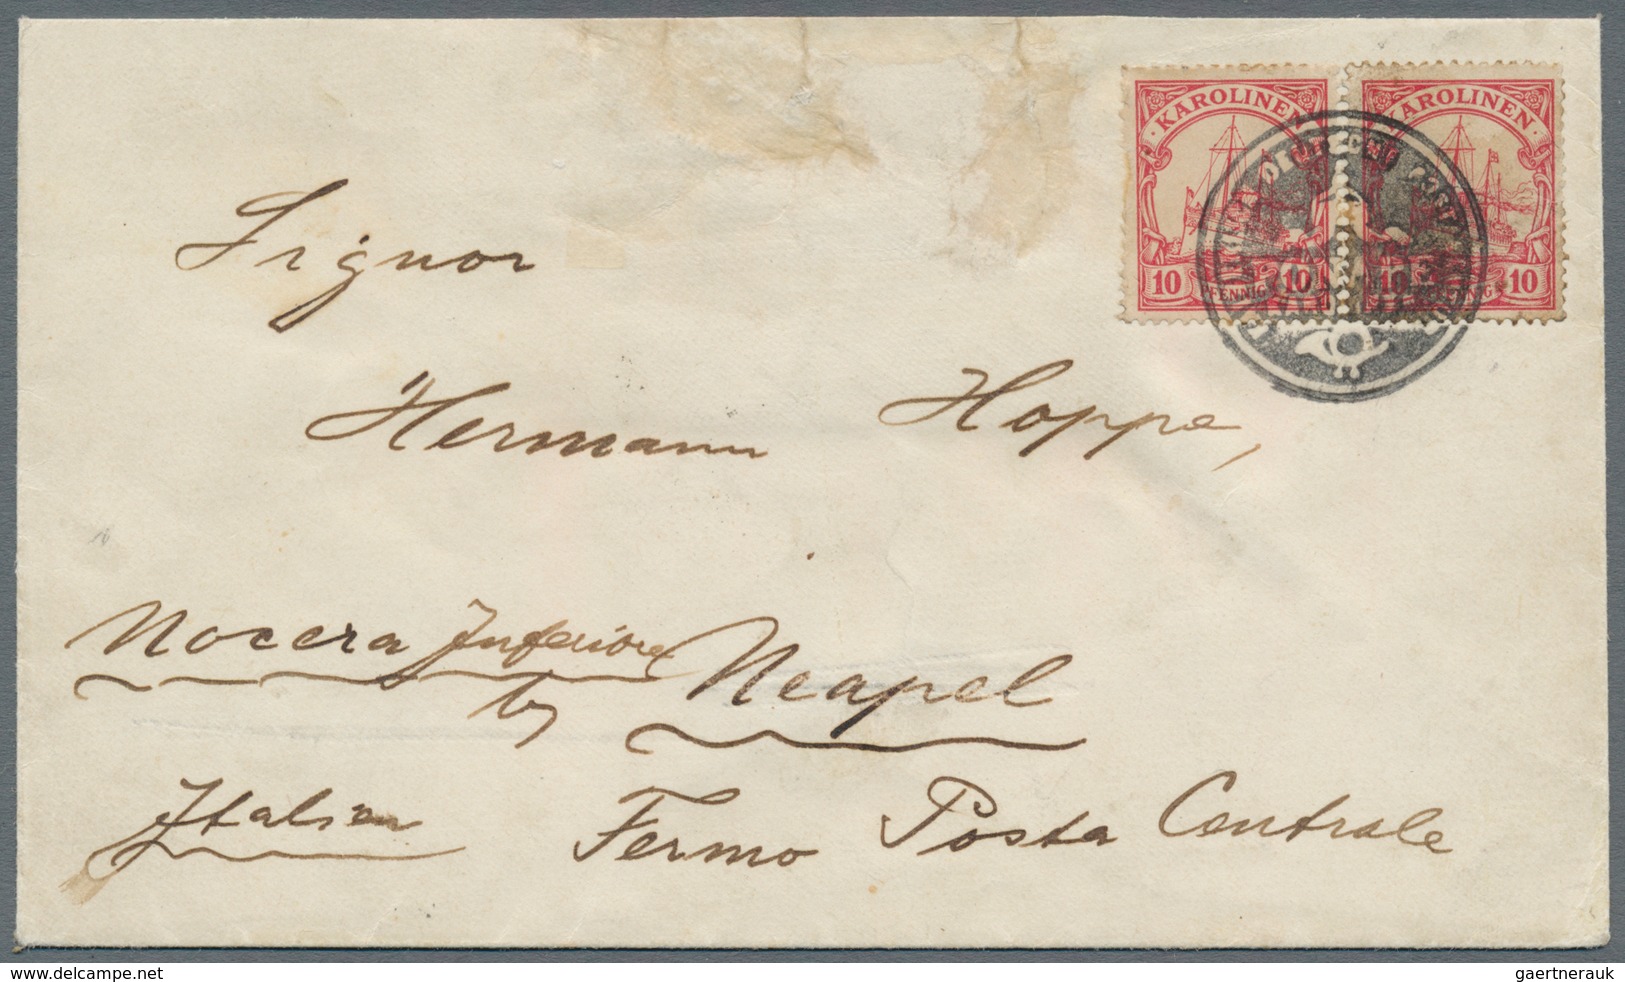 KAROLINEN KAROLINEN
10 PFENNIG 10 10 10
Signor
Hermann Hoppe,
Nocera Inferiore
by Neapel
Italien Fermo Posta Centrale
www.delcampe.net
gaertnerauk